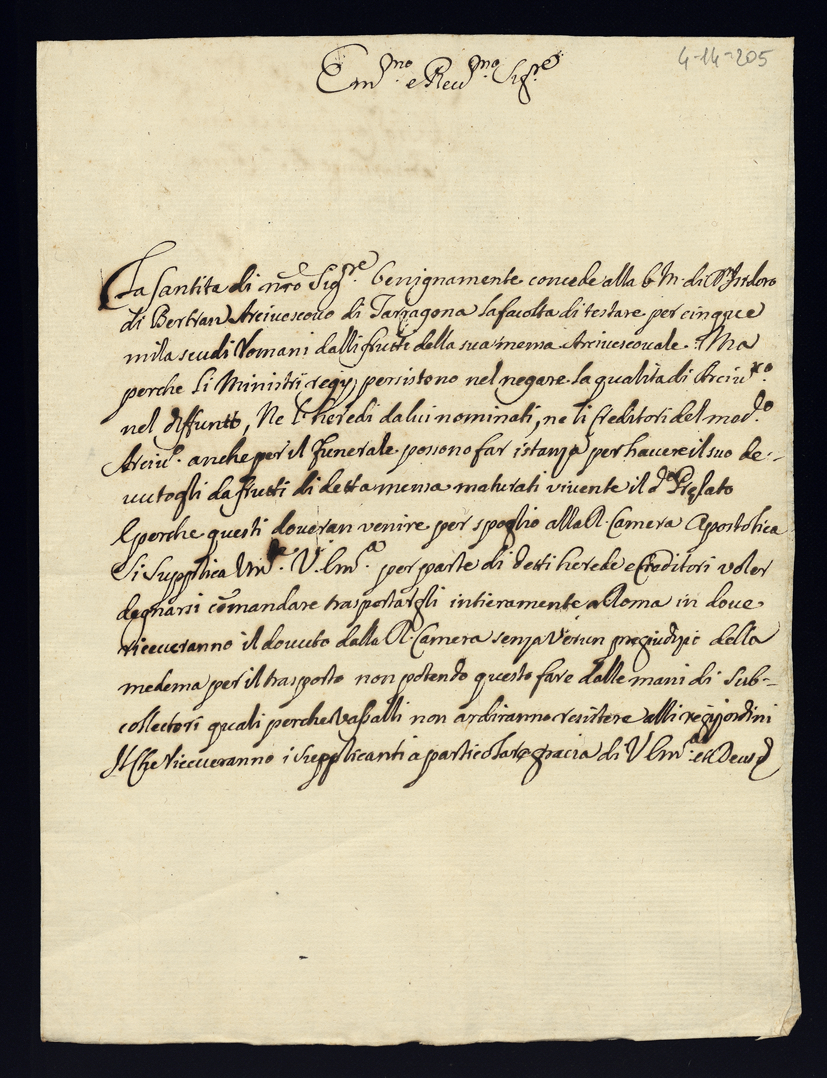 4-14-205
Em.mo e Reu.mo Sig.re
La Santita di nro Sig.re benignamente concede alla b. M. di Dn Isidoro
di Bertran Arciuescouo di Tarragona la facolta di testare per cinque
mila scudi Romani dalli frutti della sua mensa Arciuescouale. Ma
perche li Ministri regij persistono nel negare la qualità di Arciu.xo
nel diffunto, Ne l'heredi da lui nominati, ne li Creditori del mod.o
Arciu. anche per il Funerale possono far istanza per hauere il suo de-
uutogli da frutti di detta mensa maturati vivente il do Prelato
E perche questi doueran venire per spoglio alla R. Camera Apostolica
Si Supplica Um.te V. Em.a per parte di detti herede e Creditori voler
degnarsi comandare trasportargli intieramente a Roma in doue
riceueranno il douuto dalla R. Camera senza verun pregiudizio della
medema per il trasporto non potendo questo fare dalle mani di Sub-
collectori quali perche Vassalli non ardiranno resistere alli regij ordini
Il Che riceueranno i Supplicanti a particolare gracia di V Em.a